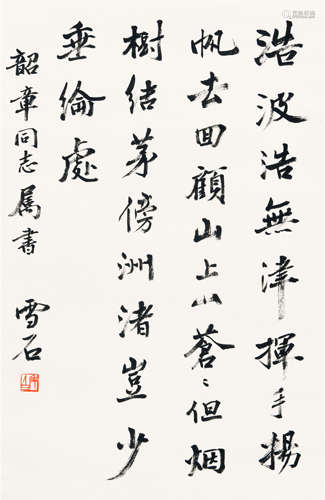 浩波浩無津揮手揚
帆去回顧山上山蒼〻但烟
樹結茅傍洲渚豈少
垂綸處
韶章同志属書
雪石